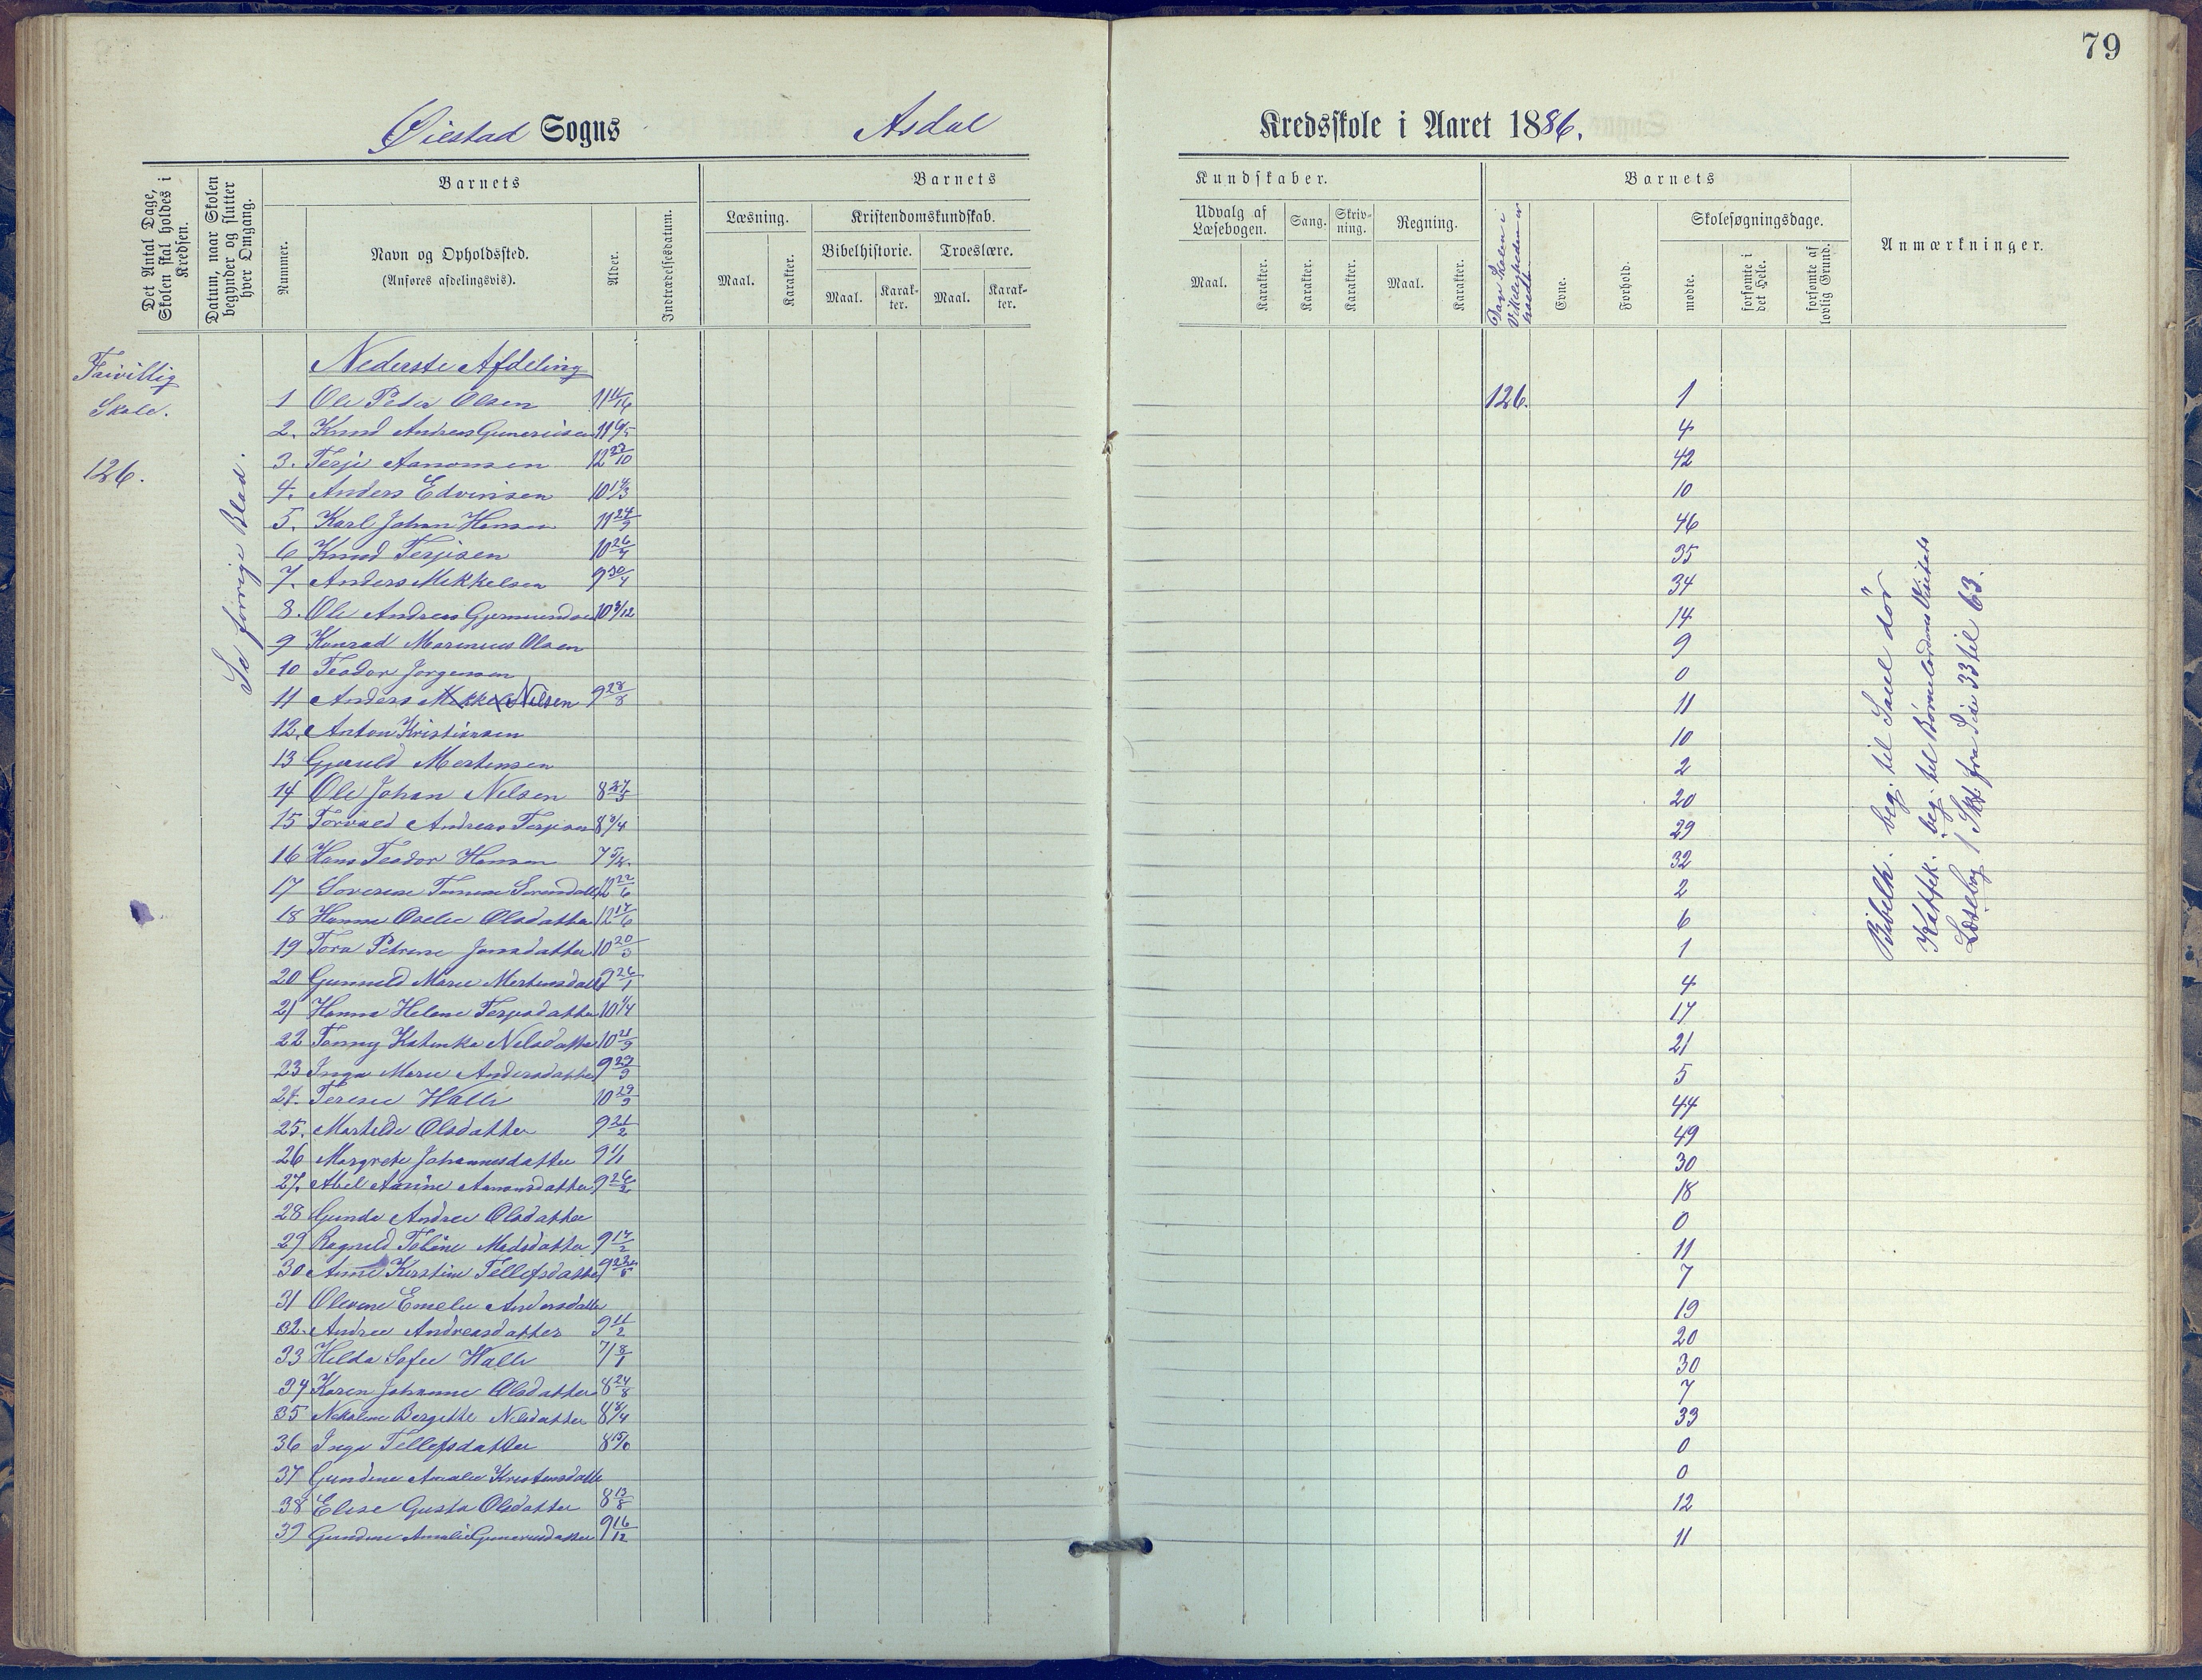 79
Øiestad Sogns Asdal Kredsskole i Aaret 1886.
Det Antal Dage, Skolen skal holdes i Kredsen.
Datum, naar Skolen begynder og slutter hver Omgang.
Barnets
Nummer.
Navn og Opholdssted.
(Anføres afdelingsvis).
Alder.
Indtrædelsesdatum.
Barnets Kundskaber.
Læsning.
Maal.
Karakter.
Kristendomskundskab.
Bibelhistorie.
Maal.
Karakter.
Troeslære.
Maal.
Karakter.
Udvalg af Læsebogen.
Maal.
Karakter.
Sang.
Karakter.
Skrivning.
Karakter.
Regning.
Maal.
Karakter.
Dage Skolen i Virkeligheden er
Barnets
Evne.
Forhold.
Skolesøgningsdage.
mødte.
forsømte i det Hele.
forsømte af lovlig Grund.
Anmærkninger.
Frivillig
Skole.
126.
Se forrige Blad.
Nederste Afdeling
1 Ole Peder Olsen 126. 1
2. Knud Andreas Gunerius 4
3. Terje Aanonsen 12 22/10 42
4. Anders Edvinsen 10 10
5. Karl Johan Hansen 11 24/9 46
6 Knud Terjesen 10 35
7. Anders Mikkelsen 9 30/4 34
8. Ole Andreas Gjermundsen 14
9 Konrad Marenius Olsen 9
10 Teodor Jørgensen 0
11 Anders Nilsen 9 28/8 11
12. Anton Kristiansen 10
13 Gjeruld Mortensen 2
14 Ole Johan Nilsen 8 20
15 Torvald Andreas Terjesen 8 29
16 Hans Teodor Hansen 7 32
17 Severine 12 22/6 2
18 Hanna Olsdatter 12 17/6 6
19 Tora Petrine Jensdatter 10 20/3 1
20 Gunnild Marie Mortensdatter 9 26/1 4
21 Hanna Helene Terjesdatter 10 17
22 Fanny Katinka Nilsdatter 10 21
23 Inga Marie Andersdatter 9 5
24. Terese Walle 10 29/9 44
25. Martilde Olsdatter 9 21/2 49
26 Margrete Johannesdatter 9 1/1 30
27. Abel Aanonsdatter 9 18
28 Gunda Andrea Olsdatter 0
29 Ragnild Tobine Madsdatter 9 17/2 11
30 Anne Kirstine Tellefsdatter 9 7
31 Olevine Emelie Andersdatter 19
32. Andrea Andreasdatter 9 11/2 20
33 Hilda Sofie Walle 7 8/1 30
34 Karen Johanne Olsdatter 8 24/8 7
35 Nikoline Bergitte Nilsdatter 8 8/4 33
36 Inga Tellefsdatter 8 0
37 Gundine Amalie Kristensdatter 0
38 Elise Gusta Olsdatter 8 13/8 12
39 Gundine Amalie Gunerius datter 9 16/12 11
Bibelh. beg. til Saul dør
Katek. beg. til Børnelærdoms
Læsebog 1 Skt. fra Side 33 til 63.